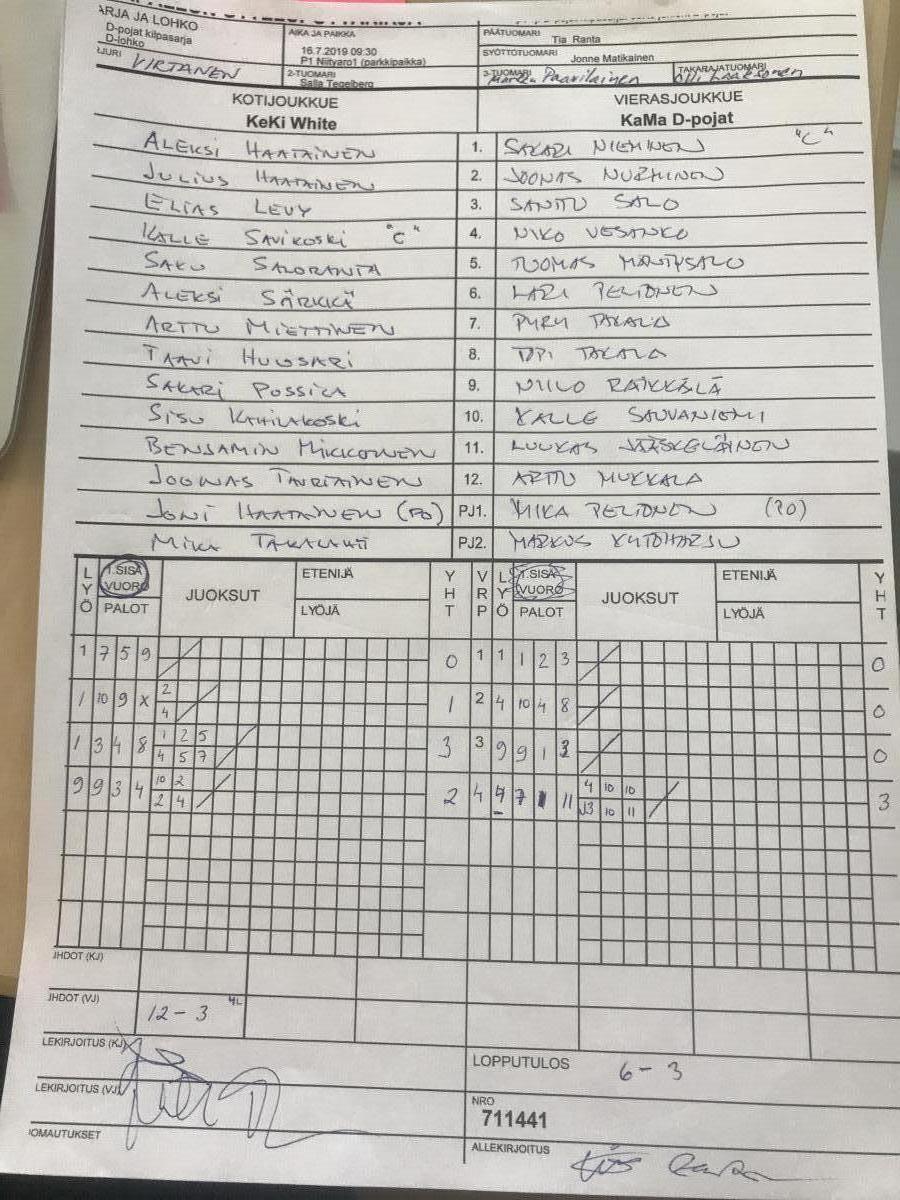 ARJA JA LOHKO
D-pojat kilpasarja
D-lohko
AIKA JA PAIKKA
16.7.2019 09:30
P1 Niityaro1 (parkkipaikka)
PÄÄTUOMARI
Tia Ranta
SYÖTTÖTUOMARI
Jonne Matikainen
JURI VIRTANEN
2-TUOMARI
Salla Tegelberg
3-TUOMARI Paavilainen
TAKARAJATUOMARI
KOTIJOUKKUE VIERASJOUKKUE
KeKi White KaMa D-pojat
ALEKSI HAATAINEN 1. SAKARI NIEMINEN "C"
JULIUS HAATAINEN 2. JOONAS NURMINEN
ELIAS LEVY 3. SANTTU SALO
KALLE SAVIKOSKI "C" 4. NIKO VESANKO
SAKU SALORANTA 5. TUOMAS MÄNTYSALO
ALEKSI SÄRKKÄ 6. LARI PELTONEN
ARTTU MIETTINEN 7. PYRY TAKALA
TAAVI HUGSARI 8. TOPI TAKALA
SAKARI POSSILA 9. NIILO RÄIKKÄLÄ
SISU KAHILAKOSKI 10. KALLE SAUVANIEMI
BENJAMIN MIKKONEN 11. LUUKAS JÄÄSKELÄINEN
JOONAS TAURIAINEN 12. ARTTU MUKKALA
JONI HAATAINEN (PO) PJ1. MIKA PELTONEN (PO)
MIKA TAKALAHTI PJ2. MARKUS KUTOHARJU
LYÖ 1.SISÄ VUORO PALOT JUOKSUT ETENIJÄ LYÖJÄ YHT VRP LYÖ 1.SISÄ VUORO PALOT JUOKSUT ETENIJÄ LYÖJÄ YHT
1 7 5 9 0 1 1 1 2 3 0
1 10 9 X 2 1 2 4 10 4 8 0
4
1 3 4 8 1 2 5 3 3 9 9 1 2 0
4 5 7
9 9 3 4 10 2 2 4 4 7 1 11 4 10 10 3
2 4 J3 10 11
JHDOT (KJ)
JHDOT (VJ) 12-3 4L
LEKIRJOITUS (KJ)
LOPPUTULOS 6-3
LEKIRJOITUS (VJ)
NRO
711441
IOMAUTUKSET
ALLEKIRJOITUS